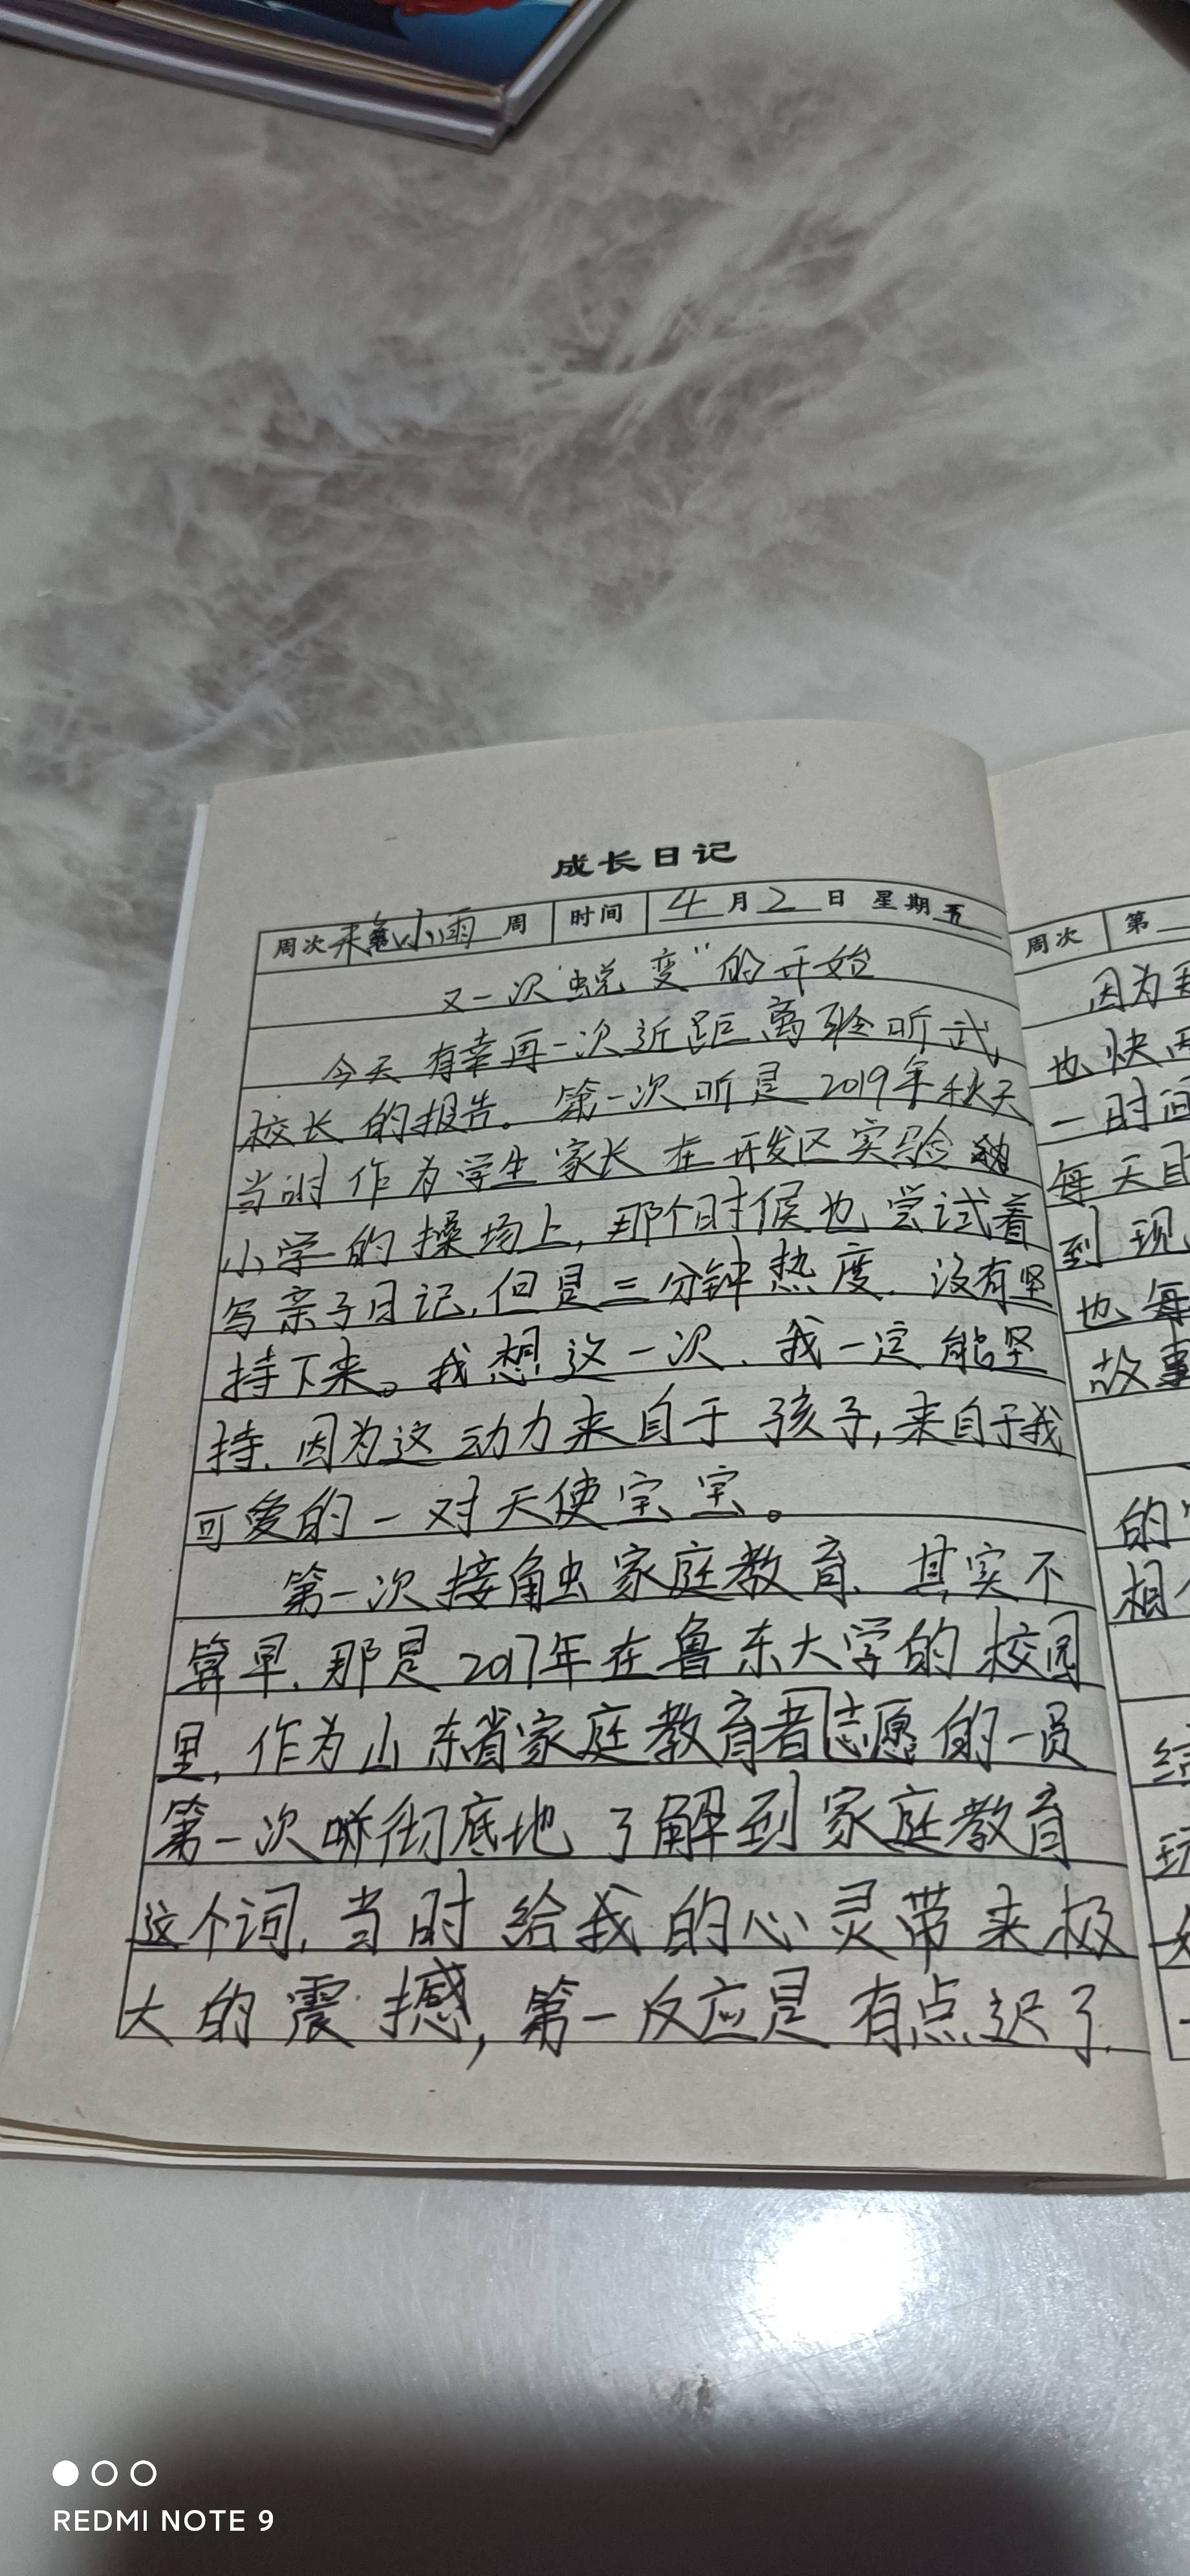 成长日记
周次 天气小雨 周 时间 4月2日 星期五
又一次"蜕变"的开始
今天有幸再一次近距离聆听武
校长的报告。第一次听是2019年秋天
当时作为学生家长在开发区实验
小学的操场上,那个时候也尝试着
写亲子日记,但是三分钟热度.没有坚
持下来。我想这一次、我一定能坚
持.因为这动力来自于孩子,来自于我
可爱的一对天使宝宝。
第一次接触家庭教育、其实不
算早.那是2017年在鲁东大学的校园
里,作为山东省家庭教育者志愿的一员
第一次彻底地了解到家庭教育
这个词,当时给我的心灵带来极
大的震撼,第一反应是有点迟了.
周次 第
因为
也快
一时间
每天
到现
也每
故事
的
相